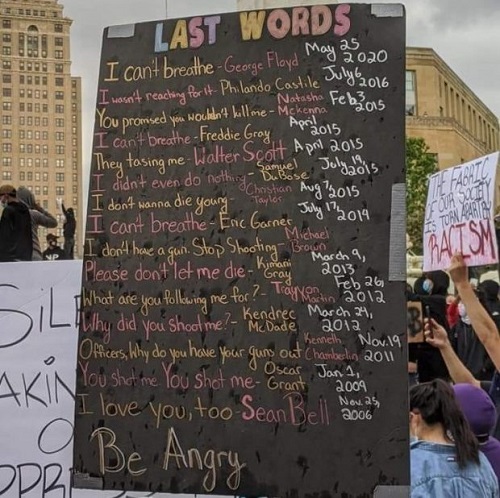 LAST WORDS
I can't breathe - George Floyd May 25 2020
I wasn't reaching for it - Philando Castile July 6 2016
You promised you wouldn't kill me - Natasha Mckenna Feb 3, 2015
I can't breathe - Freddie Gray April 2015
They tasing me - Walter Scott April 2015
I didn't even do nothing - Samuel DuBose July 19, 2015
I don't wanna die young - Christian Taylor Aug 7, 2015
I can't breathe - Eric Garner July 17, 2014
I don't have a gun. Stop Shooting - Michael Brown
Please don't let me die - Kimani Gray March 9, 2013
What are you following me for? - Trayvon Martin Feb 26, 2012
Why did you shoot me? - Kendrec McDade March 24, 2012
Officers, Why do you have your guns out Kenneth Chamberlin Nov. 19 2011
You shot me You Shot me - Oscar Grant Jan 1, 2009
I love you, too - Sean Bell Nov. 25, 2006
Be Angry
THE FABRIC
OF OUR SOCIETY
IS TORN APART BY
RACISM
SIL
AKIN
O
PPR